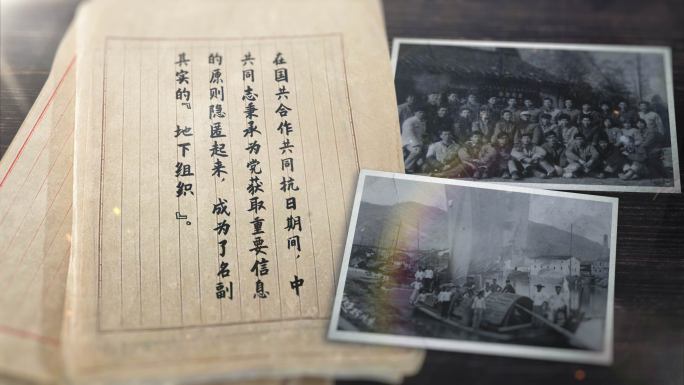 在国共合作共同抗日期间，中
共同志秉承为党获取重要信息
的原则隐匿起来，成为了名副
其实的『地下组织』。